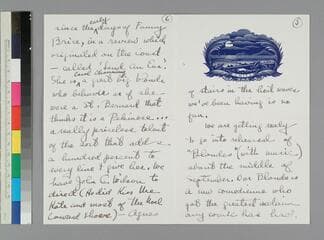 6
early
since the days of Fanny
Brice, in a review which
originated on the coast
- called "Lend An Ear."
Carol Channing
She is a giant blonde
who behaves as if she
were a St. Bernard that
thinks it's a Pekinese...
a really priceless talent
of the sort that adds
a hundred percent to
every line I give her. We
have John C. Wilson to
direct (He did Kiss Me
Kate and most of the Noel
Coward shows) — Agnes
5
of stairs in the heat waves
we've been having is no
fun.
We are getting ready
to go into rehearsal of
"Blondes" (with music)
about the middle of
September. Our Blonde is
a new comedienne who
got the greatest acclaim
any comic has had